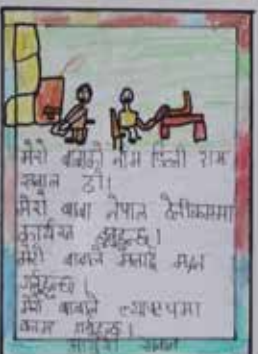 मेरो बाबाको नाम डिल्ली राम
हो।
मेरो बाबा नेपाल टेलिकममा
कार्यरत हुनुहुन्छ।
मेरो बाबाले मलाई माया
गर्नुहुन्छ।
मेरो बाबाले ल्यापटपमा
काम गर्नुहुन्छ।